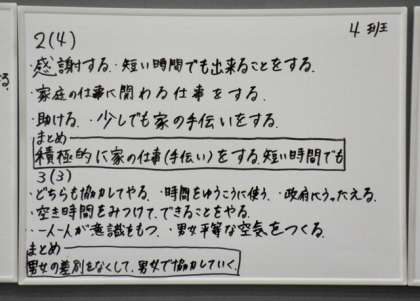 4班
2(4)
・感謝する ・短い時間でも出来ることをする.
・家庭の仕事に関わる仕事をする.
・助ける. ・少しでも家の手伝いをする.
まとめ
積極的に家の仕事(手伝い)をする.短い時間でも
3(3)
・どちらも協力してやる. ・時間をゆうこうに使う. ・政府にうったえる.
・空き時間をみつけて、できることをやる.
・一人一人が意識をもつ. ・男女平等な空気をつくる.
まとめ
男女の差別をなくして、男女で協力していく.
る.